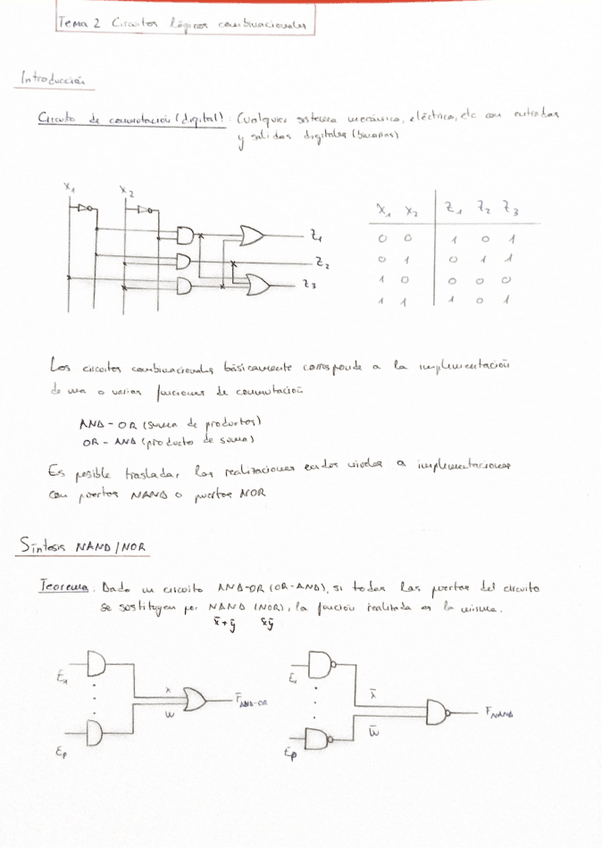 Tema 2 Circuitos lógicos combinacionales
Introducción
Circuito de conmutación (digital): Cualquier sistema mecánico, eléctrico, etc con entradas
y salidas digitales (binarias)
X1 X2
Z1
Z2
Z3
X1 X2 Z1 Z2 Z3
0 0 1 0 1
0 1 0 1 1
1 0 0 0 0
1 1 1 0 1
Los circuitos combinacionales básicamente corresponde a la implementación
de una o varias funciones de conmutación
AND-OR (suma de productos)
OR-AND (producto de suma)
Es posible trasladar las realizaciones en dos niveles a implementaciones
con puertas NAND o puertas NOR
Síntesis NAND/NOR
Teorema: Dado un circuito AND-OR (OR-AND), si todas las puertas del circuito
se sustituyen por NAND (NOR), la función realizada es la misma.
x̄+ȳ x̄ȳ
E1 x FAND-OR
w
Ep
E1 x̄ FNAND
w̄
Ep